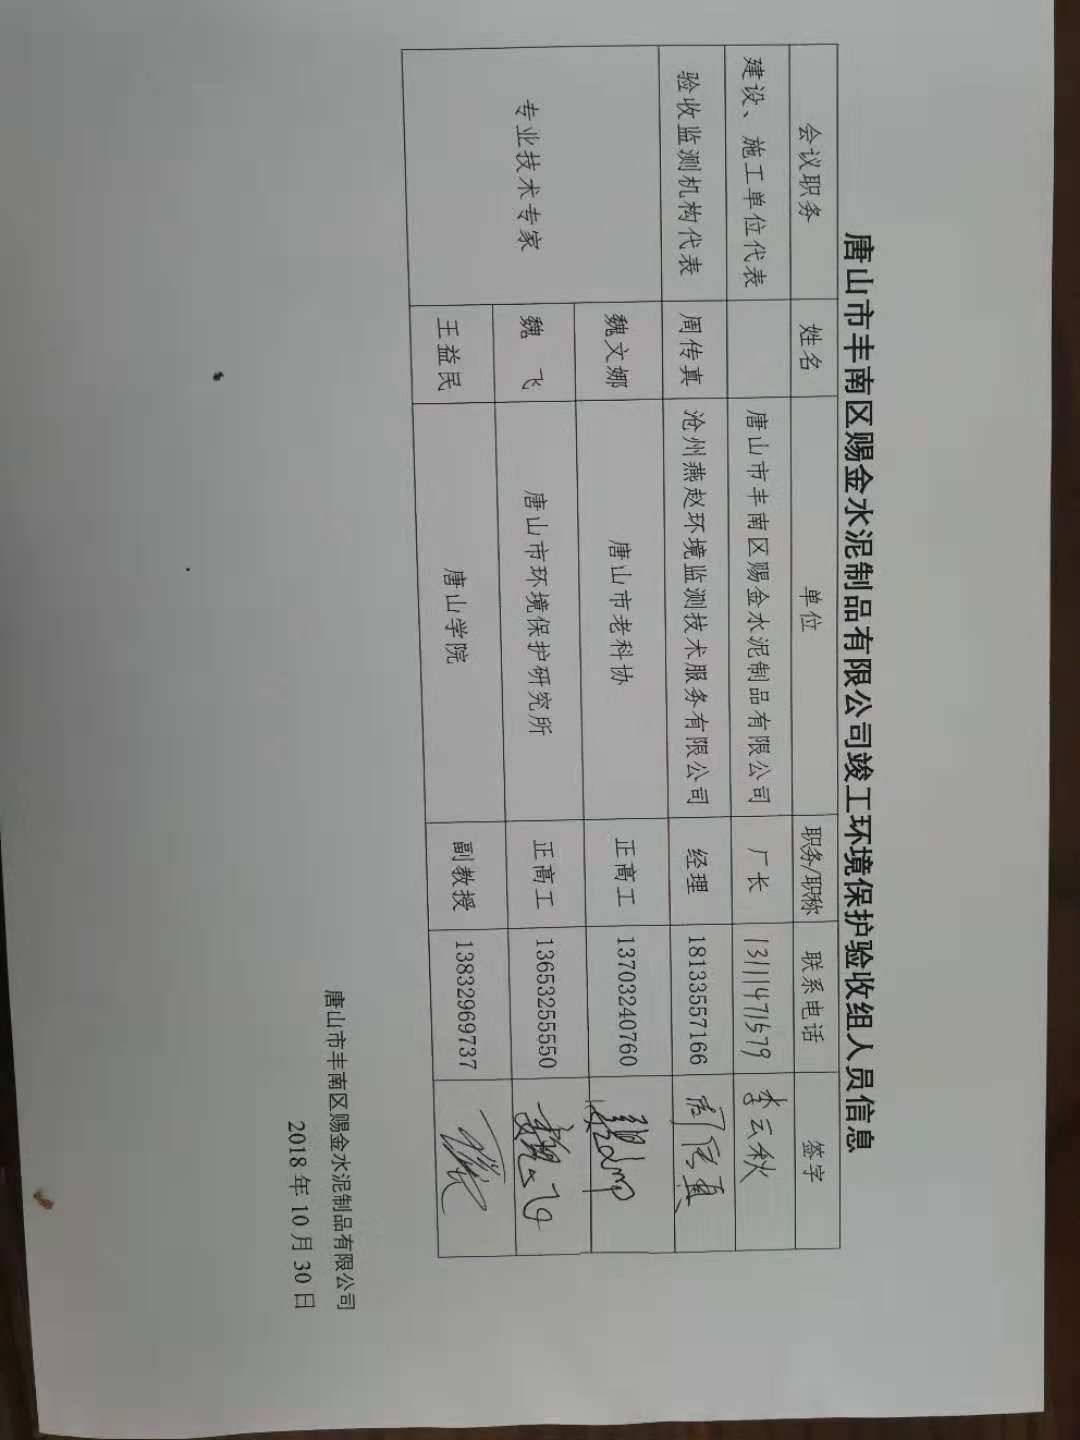 唐山市丰南区赐金水泥制品有限公司竣工环境保护验收组人员信息
会议职务 姓名 单位 职务/职称 联系电话 签字
建设、施工单位代表 唐山市丰南区赐金水泥制品有限公司 厂长 13111471579 李云秋
验收监测机构代表 周传真 沧州燕赵环境监测技术服务有限公司 经理 18133557166 周传真
专业技术专家 魏文娜 唐山市老科协 正高工 13703240760
魏飞 唐山市环境保护研究所 正高工 13653255550 魏飞
王益民 唐山学院 副教授 13832969737
唐山市丰南区赐金水泥制品有限公司
2018年10月30日